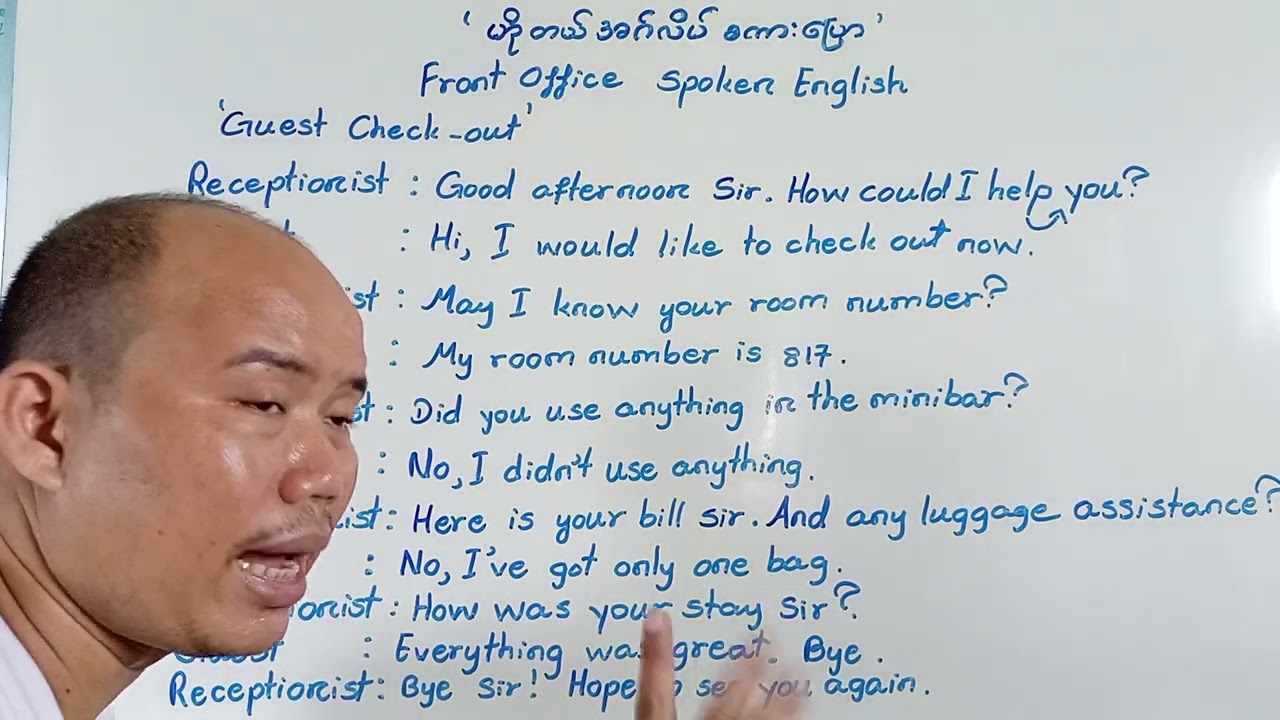 ‘ ဟိုတယ်အင်္ဂလိပ် စကားပြော ’
Front Office Spoken English
‘Guest Check-out’
Receptionist : Good afternoon Sir. How could I help you?
: Hi, I would like to check out now.
st : May I know your room number?
: My room number is 817.
st : Did you use anything in the minibar?
: No, I didn't use anything.
ist : Here is your bill sir. And any luggage assistance?
: No, I've got only one bag.
onist : How was your stay Sir?
Guest : Everything was great. Bye.
Receptionist : Bye Sir! Hope to see you again.